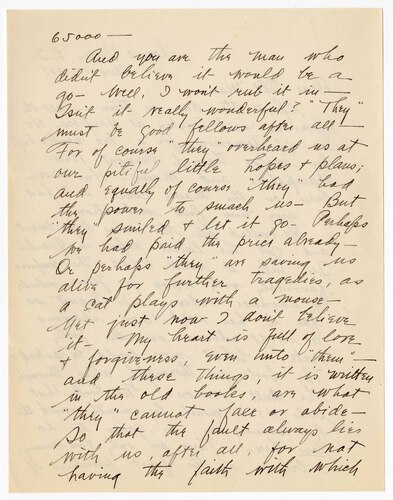 65000 —
And you are the man who
didn't believe it would be a
go — Well, I wont rub it in —
Isnt it really wonderful? "They"
must be good fellows after all —
For of course "they" overheard us at
our pitiful little hopes + plans;
and equally of course "they" had
the power to smash us — But
"they" smiled + let it go — Perhaps
we had paid the price already —
Or perhaps "they" are saving us
alive for further tragedies, as
a cat plays with a mouse —
Yet just now I dont believe
it — My heart is full of love
+ forgiveness, even unto "them" —
and these things, it is written
in the old books, are what
"they" cannot face or abide —
So that the fault always lies
with us, after all, for not
having the faith with which